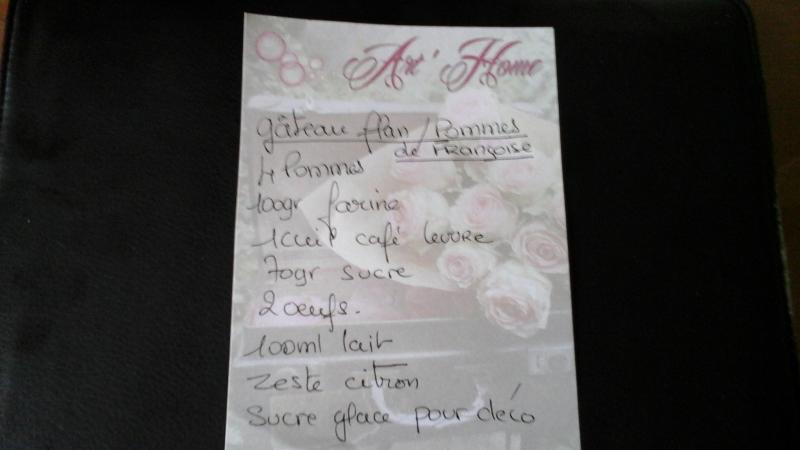 Art' Home
gâteau flan / Pommes
de Françoise
4 Pommes
100gr farine
1 cuil café levure
70gr sucre
2 œufs.
100ml lait
zeste citron
sucre glace pour déco